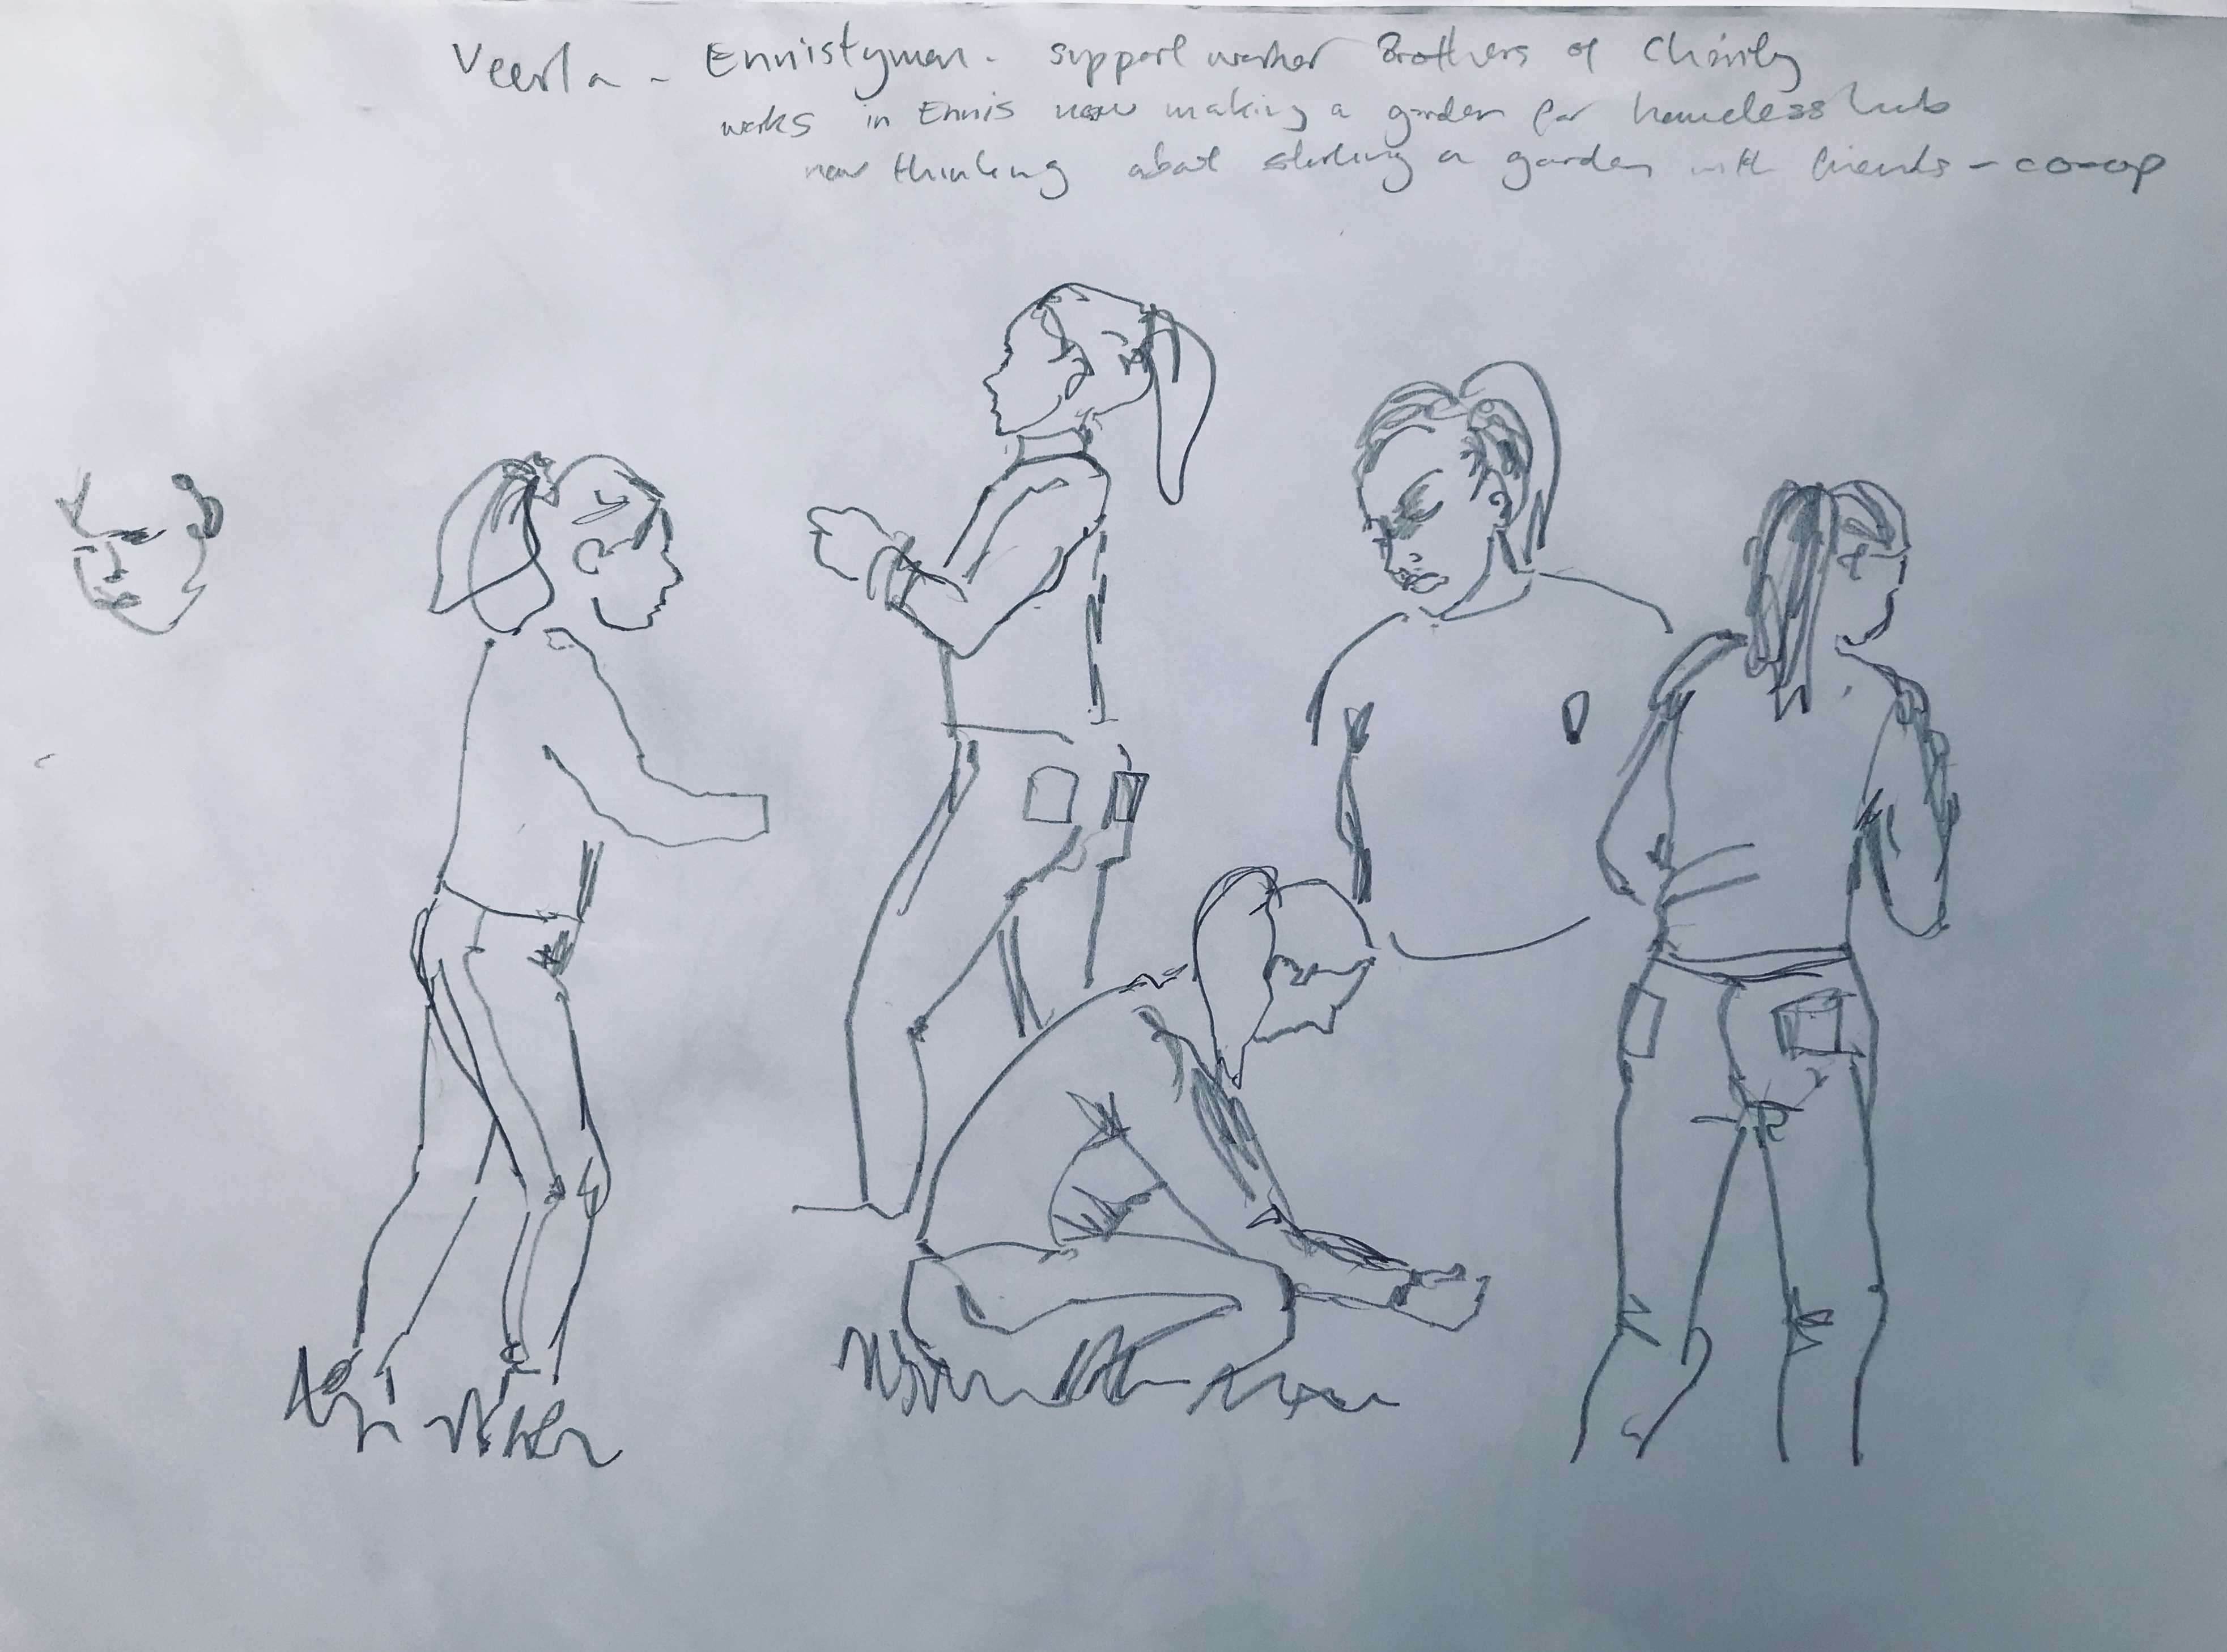 Veerla - Ennistymon - support worker Brothers of Charity
works in Ennis now making a garden for homeless hub
now thinking about starting a garden with friends - co-op